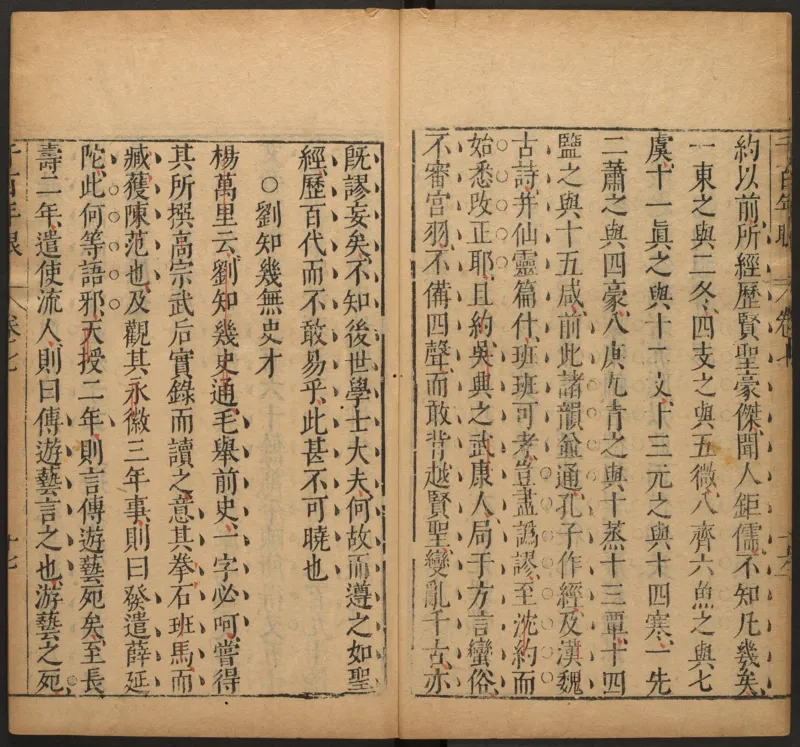 千百年眼 卷七
約以前所經歷賢聖豪傑聞人鉅儒不知凡幾矣
一東之與二冬四支之與五微八齊六魚之與七
虞十一眞之與十二文十三元之與十四寒一先
二蕭之與四豪八庚九青之與十蒸十三覃十四
鹽之與十五咸前此諸韻並通孔子作經及漢魏
古詩并仙靈篇什班班可考豈盡譌謬至沈約而
始悉改正耶且約吳興之武康人局于方言蠻俗
不審宮羽不備四聲而敢背越賢聖變亂千古亦
旣謬妄矣不知後世學士大夫何故而遵之如聖
經歷百代而不敢易乎此甚不可曉也
○劉知幾無史才
楊萬里云劉知幾史通毛舉前史一字必呵嘗得
其所撰高宗武后實錄而讀之意其拳石班馬而
臧獲陳范也及觀其永徽三年事則曰發遣薛延
陀此何等語邪天授二年則言傅遊藝死矣至長
壽二年遣使流人則曰傅遊藝言之也游藝之死
千百年眼 卷七 十七